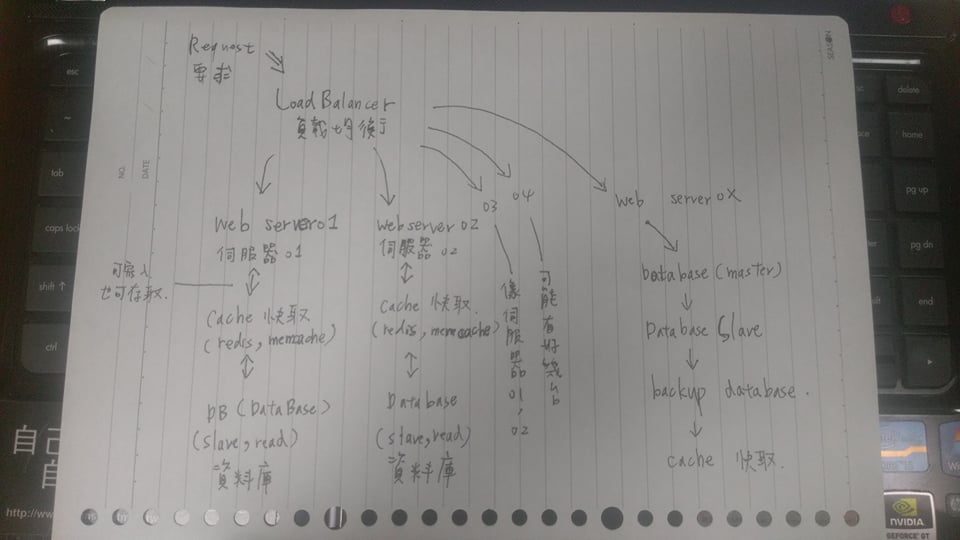 Request
要求
Load Balancer
負載均衡
Web server01
伺服器 01
可寫入
也可存取.
Cache 快取
(redis, memcache)
DB (DataBase)
(slave, read)
資料庫
Web server 02
伺服器 02
Cache 快取.
(redis, memcache)
Database
(slave, read)
資料庫
03
像伺服器 01, 02
04
可能有好幾台
Web server 0X
Database (master)
Database Slave
backup database.
cache 快取.
NO.
DATE
SEASON
esc
tab
caps lock
shift ↑
ctrl
delete
home
pg up
pg dn
end
自己
自
http://ww
NVIDIA
GEFORCE GT